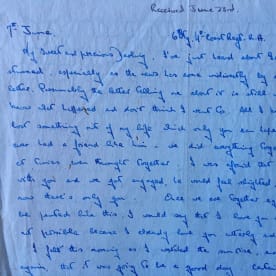 Received June 23rd.
7th June 6th Bty, 4th Coast Regt. R.A.
My Sweet and precious Darling, I've just heard about
stunned, especially as the news has come indirectly by
letter. Presumably the letter telling me about it is still
know what happened and don't think I want to. All I
lost something out of my life which only you can
ever had a friend like him - we did everything together
at times, even thought together. I was afraid that
with you and we got engaged, he would feel slighted
now there's only you. Once we are together
be parted like this. I would say that I love you
not possible because I already love you utterly and
I felt this morning as I watched the sunrise,
again, that it was going to be a good day.